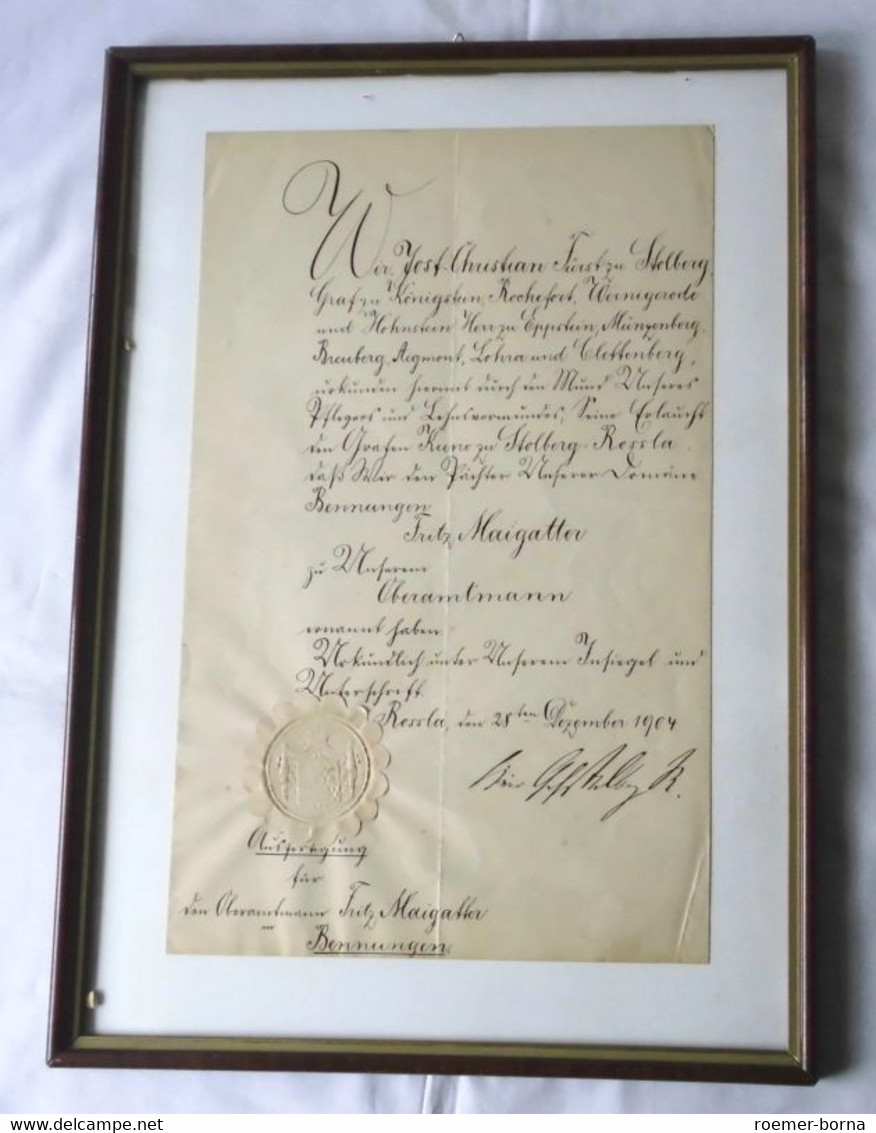 Wir, Jost-Christian Fürst zu Stolberg,
Graf zu Königstein, Rochefort, Wernigerode
und Hohnstein Herr zu Eppstein, Münzenberg,
Breuberg, Aigmont, Lohra und Clettenberg,
urkunden hiermit durch den Mund Unseres
Pflegers und Lehnsvormundes, Seine Erlaucht
den Grafen Kuno zu Stolberg-Rossla,
daß Wir den Pächter Unserer Domäne
Bennungen
Fritz Maigatter
zu Unserem
Oberamtmann
ernannt haben.
Urkundlich unter Unserem Insiegel und
Unterschrift.
Rossla, den 28ten Dezember 1904
Ausfertigung
für
den Oberamtmann Fritz Maigatter
Bennungen.
www.delcampe.net
roemer-borna